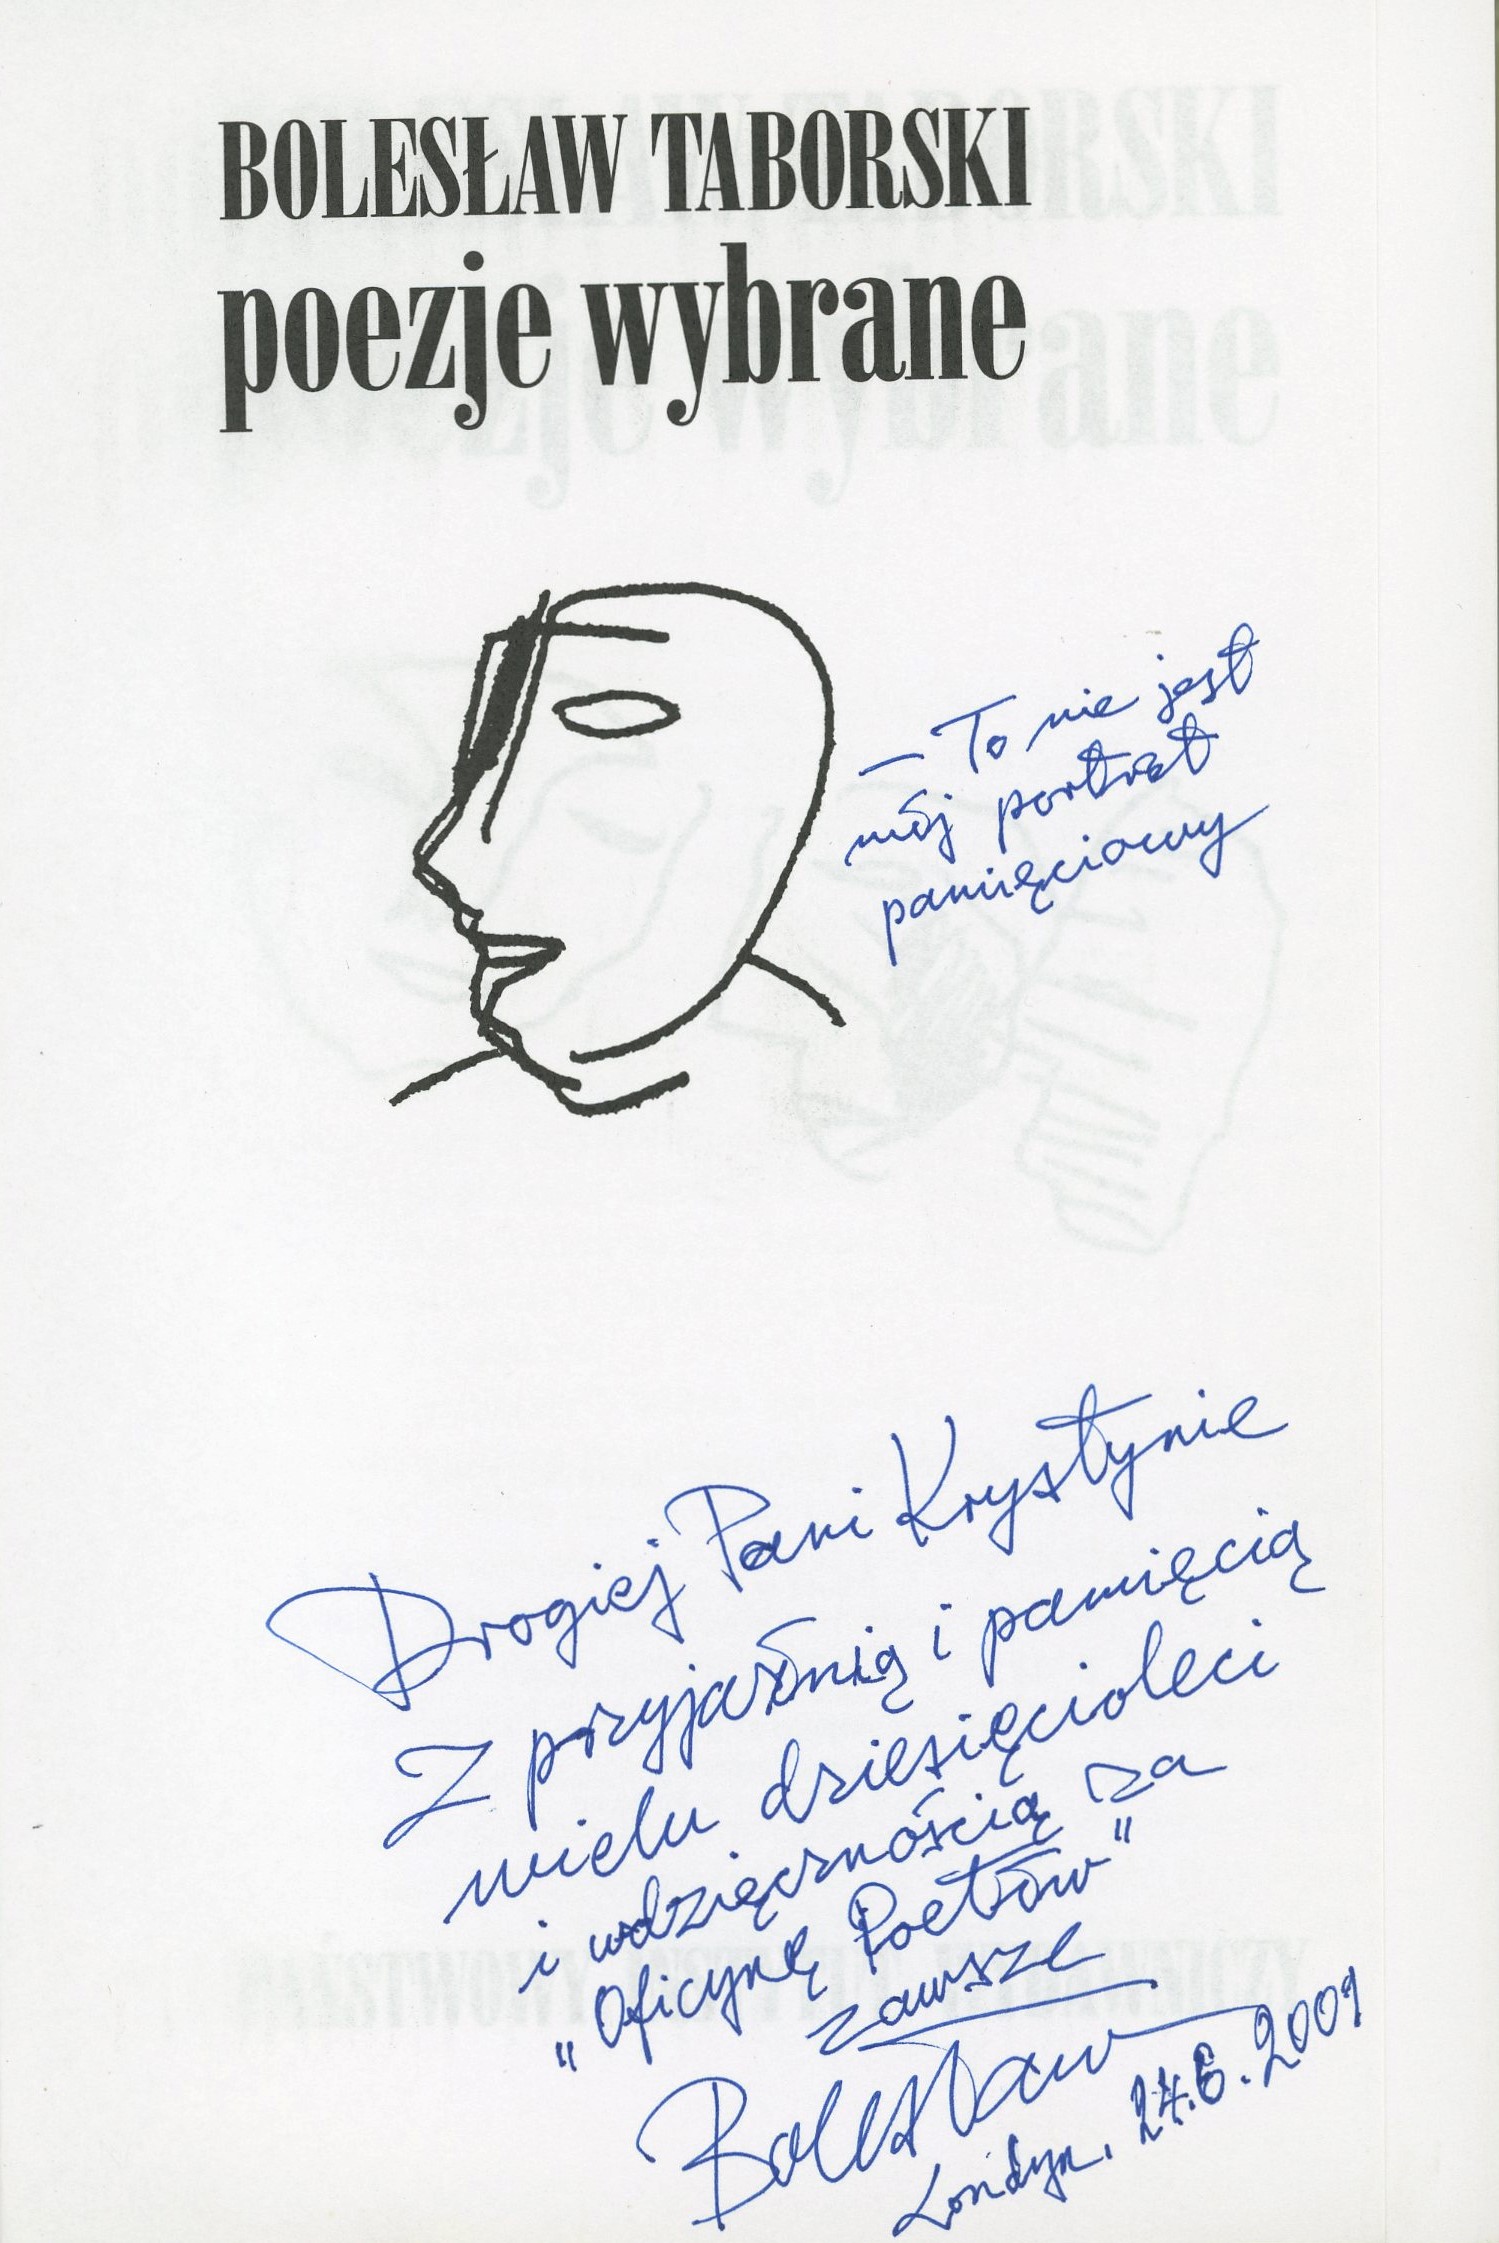 BOLESŁAW TABORSKI
poezje wybrane
– To nie jest
mój portret
pamięciowy
Drogiej Pani Krystynie
Z przyjaźnią i pamięcią
wielu dziesięcioleci
i wdzięcznością za
„Oficynę Poetów"
zawsze
Bolesław
Londyn, 24.6.2009